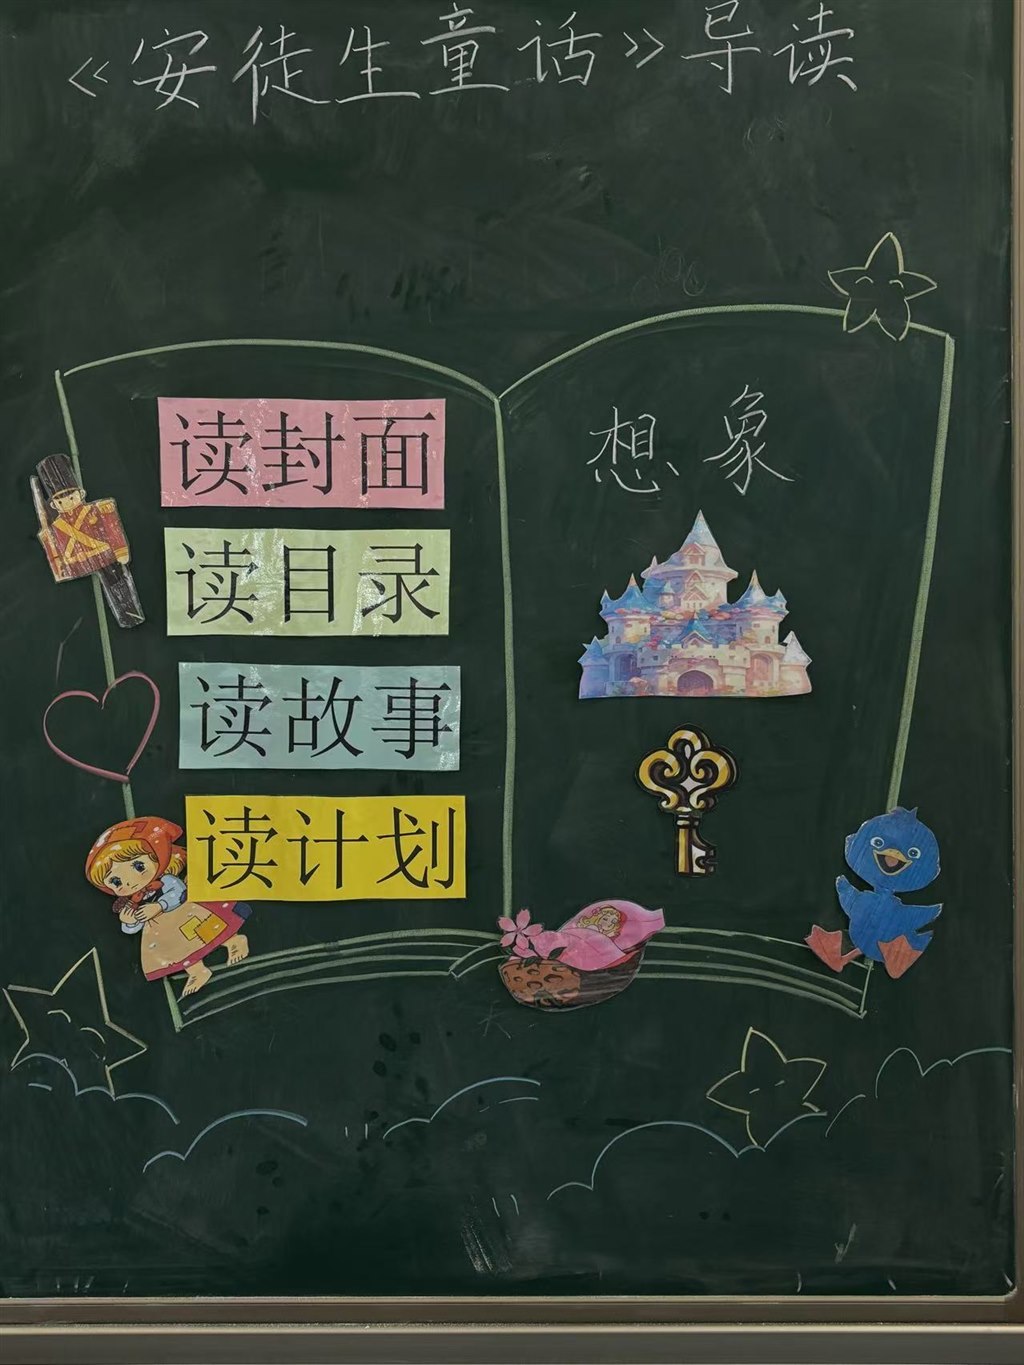 《安徒生童话》导读
读封面
读目录
读故事
读计划
想象